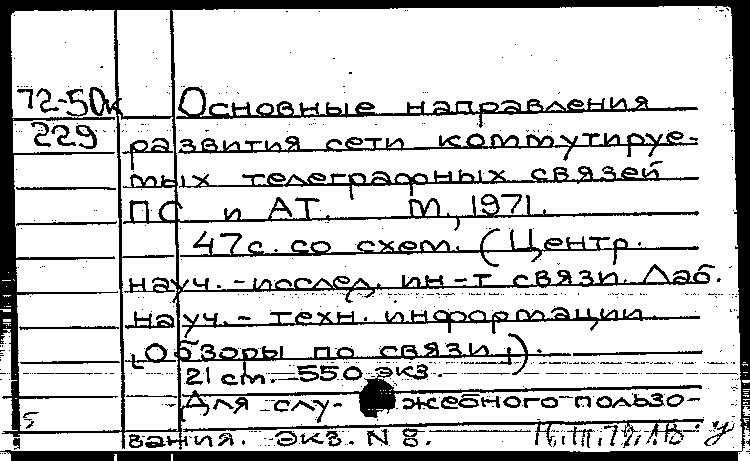 72-50к Основные направления
229 развития сети коммутируе-
мых телеграфных связей
ПС и АТ. М., 1971.
47с. со схем. (Центр.
науч.-послед. ин-т связи. Лаб.
науч.- техн. информации.
"Обзоры по связи").
21 cm. 550 экз.
Для слу- жебного пользо-
5
вания. экз. N 8.